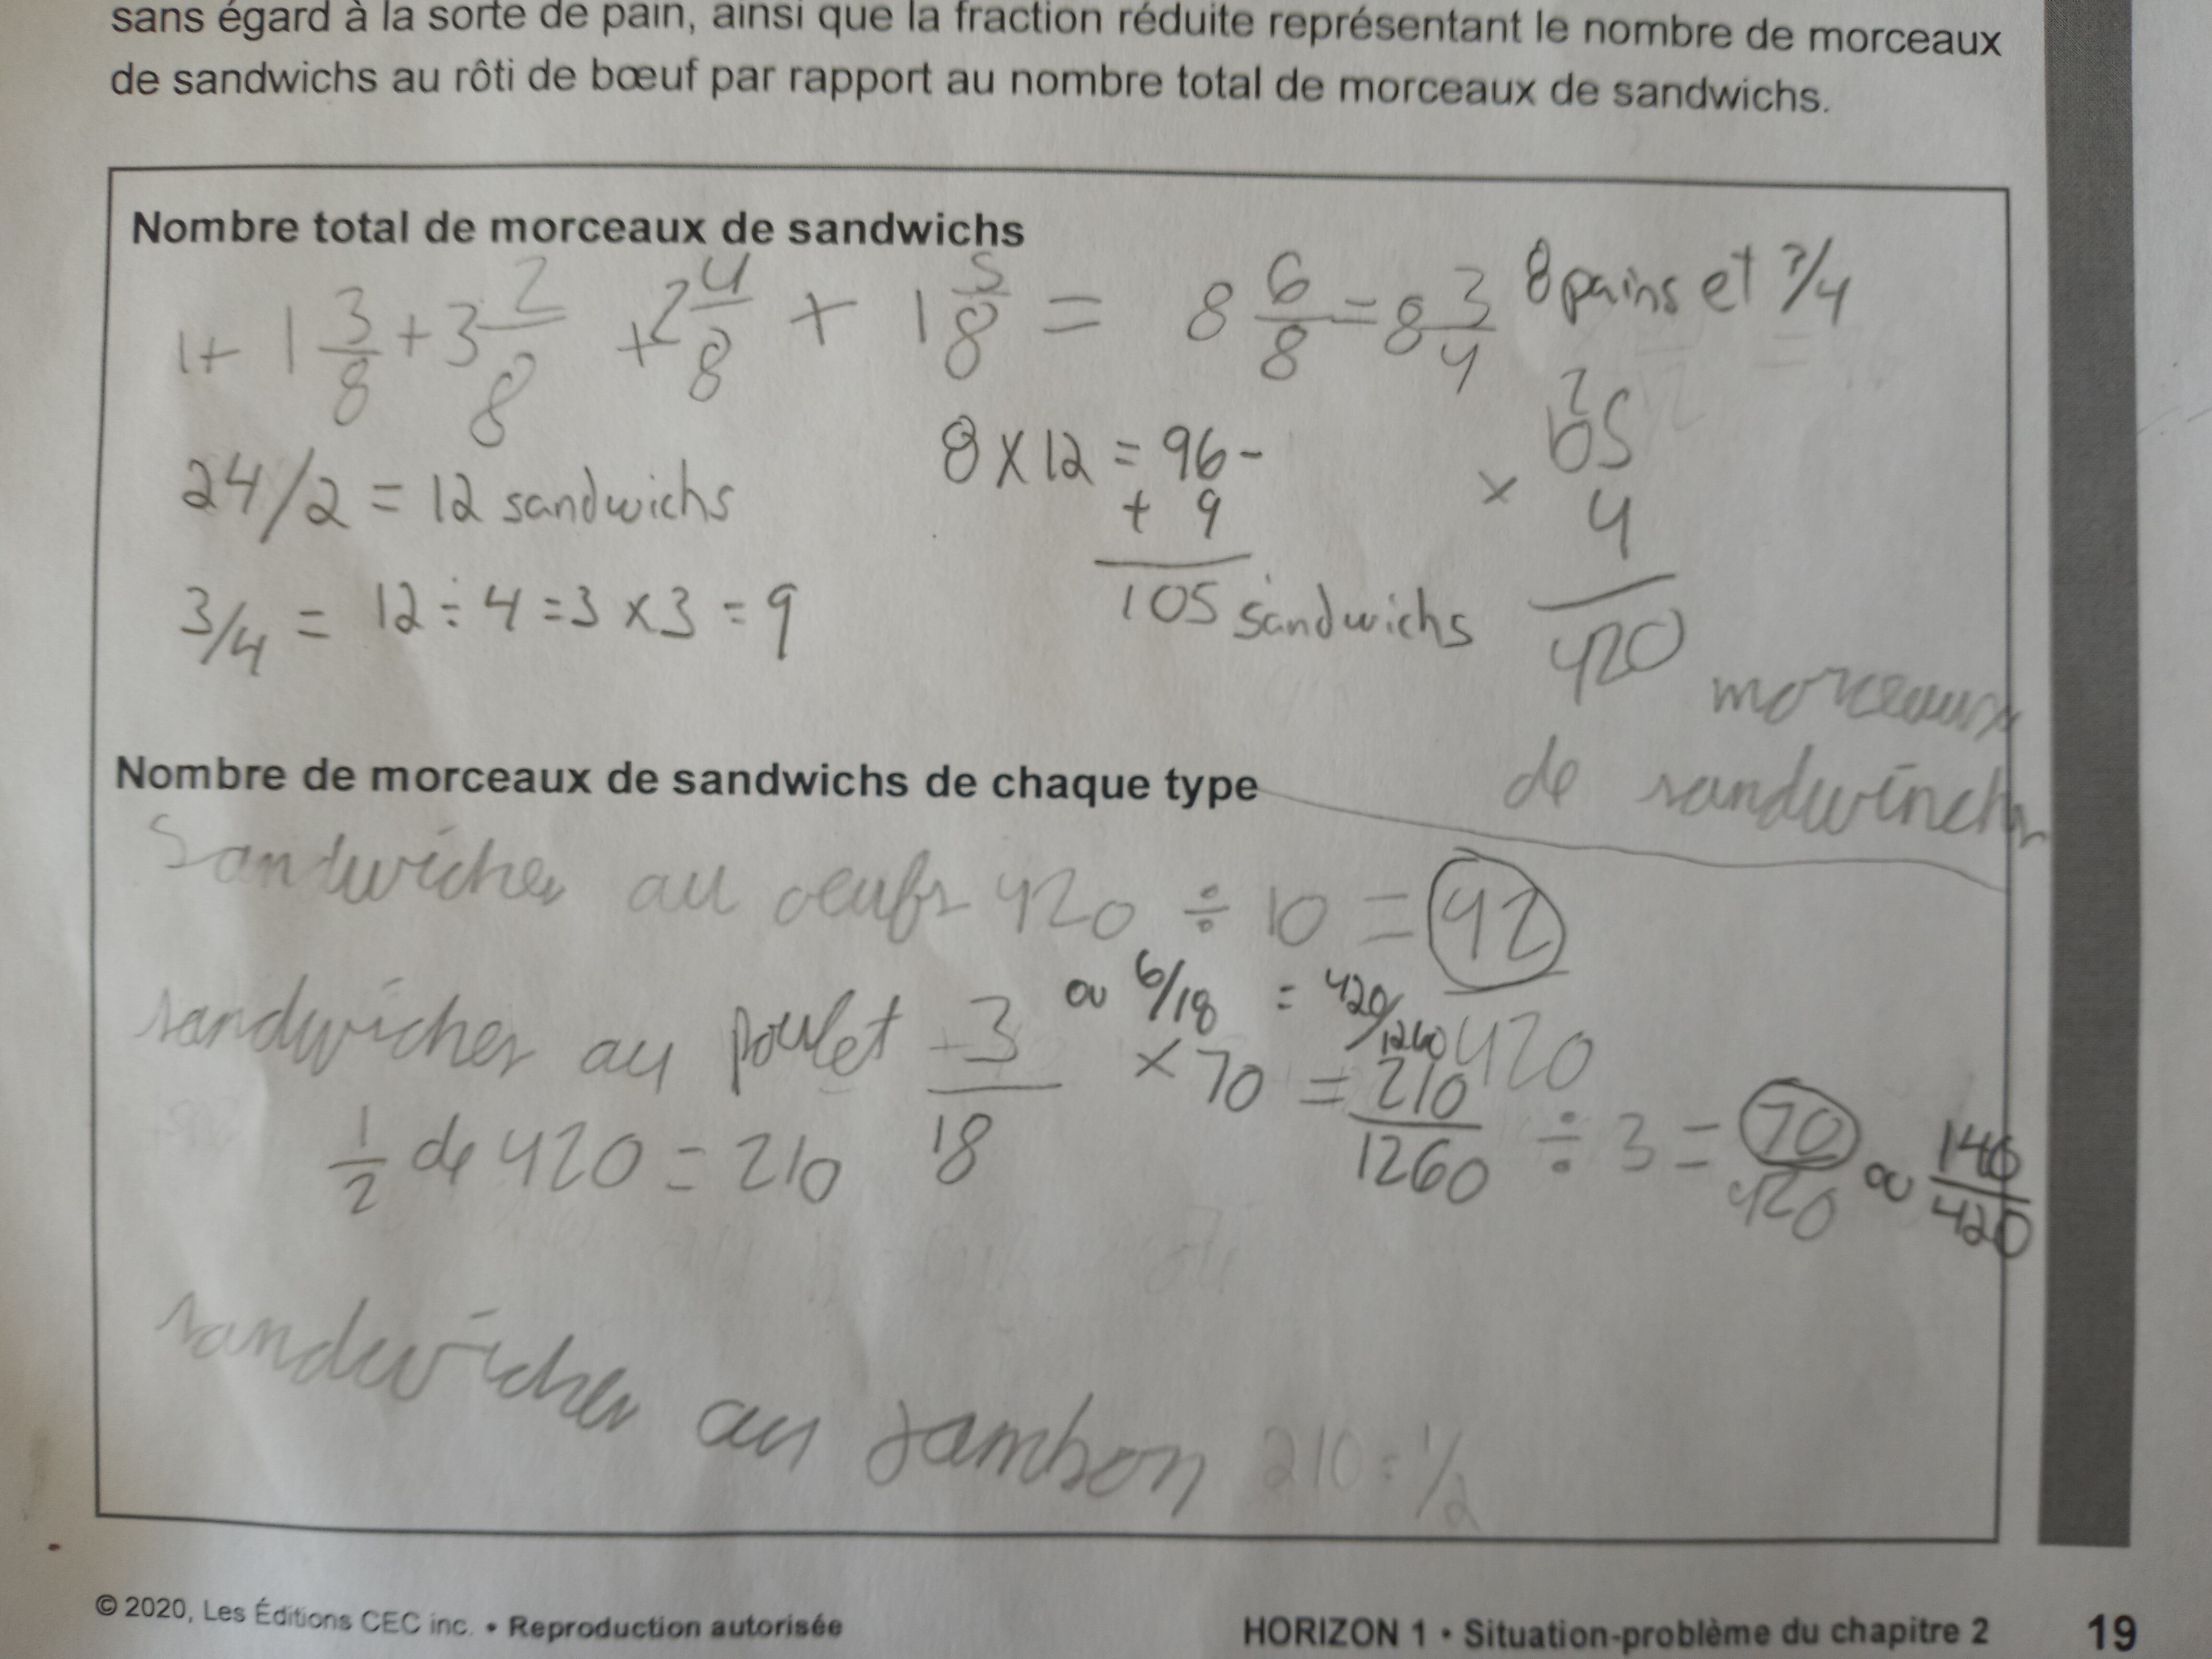 sans égard à la sorte de pain, ainsi que la fraction réduite représentant le nombre de morceaux
de sandwichs au rôti de bœuf par rapport au nombre total de morceaux de sandwichs.
Nombre total de morceaux de sandwichs
1+ 1 3/8 + 3 2/8 + 2 4/8 + 1 5/8 = 8 6/8 = 8 3/4 8 pains et 3/4
24/2 = 12 sandwichs
3/4 = 12 ÷ 4 = 3 x 3 = 9
8 X 12 = 96 -
+ 9
105 sandwichs
2
105
x 4
420 morceaux
de sandwinches
Nombre de morceaux de sandwichs de chaque type
Sandwiches au oeufs 420 ÷ 10 = 42
sandwiches au poulet 3/18 x 70 = 210/1260 ÷ 3 = 70/420 ou 140/420
ou 6/18 = 420/1260
420
1/2 de 420 = 210
sandwiches au jambon 210 = 1/2
© 2020, Les Éditions CEC inc. • Reproduction autorisée
HORIZON 1 • Situation-problème du chapitre 2 19